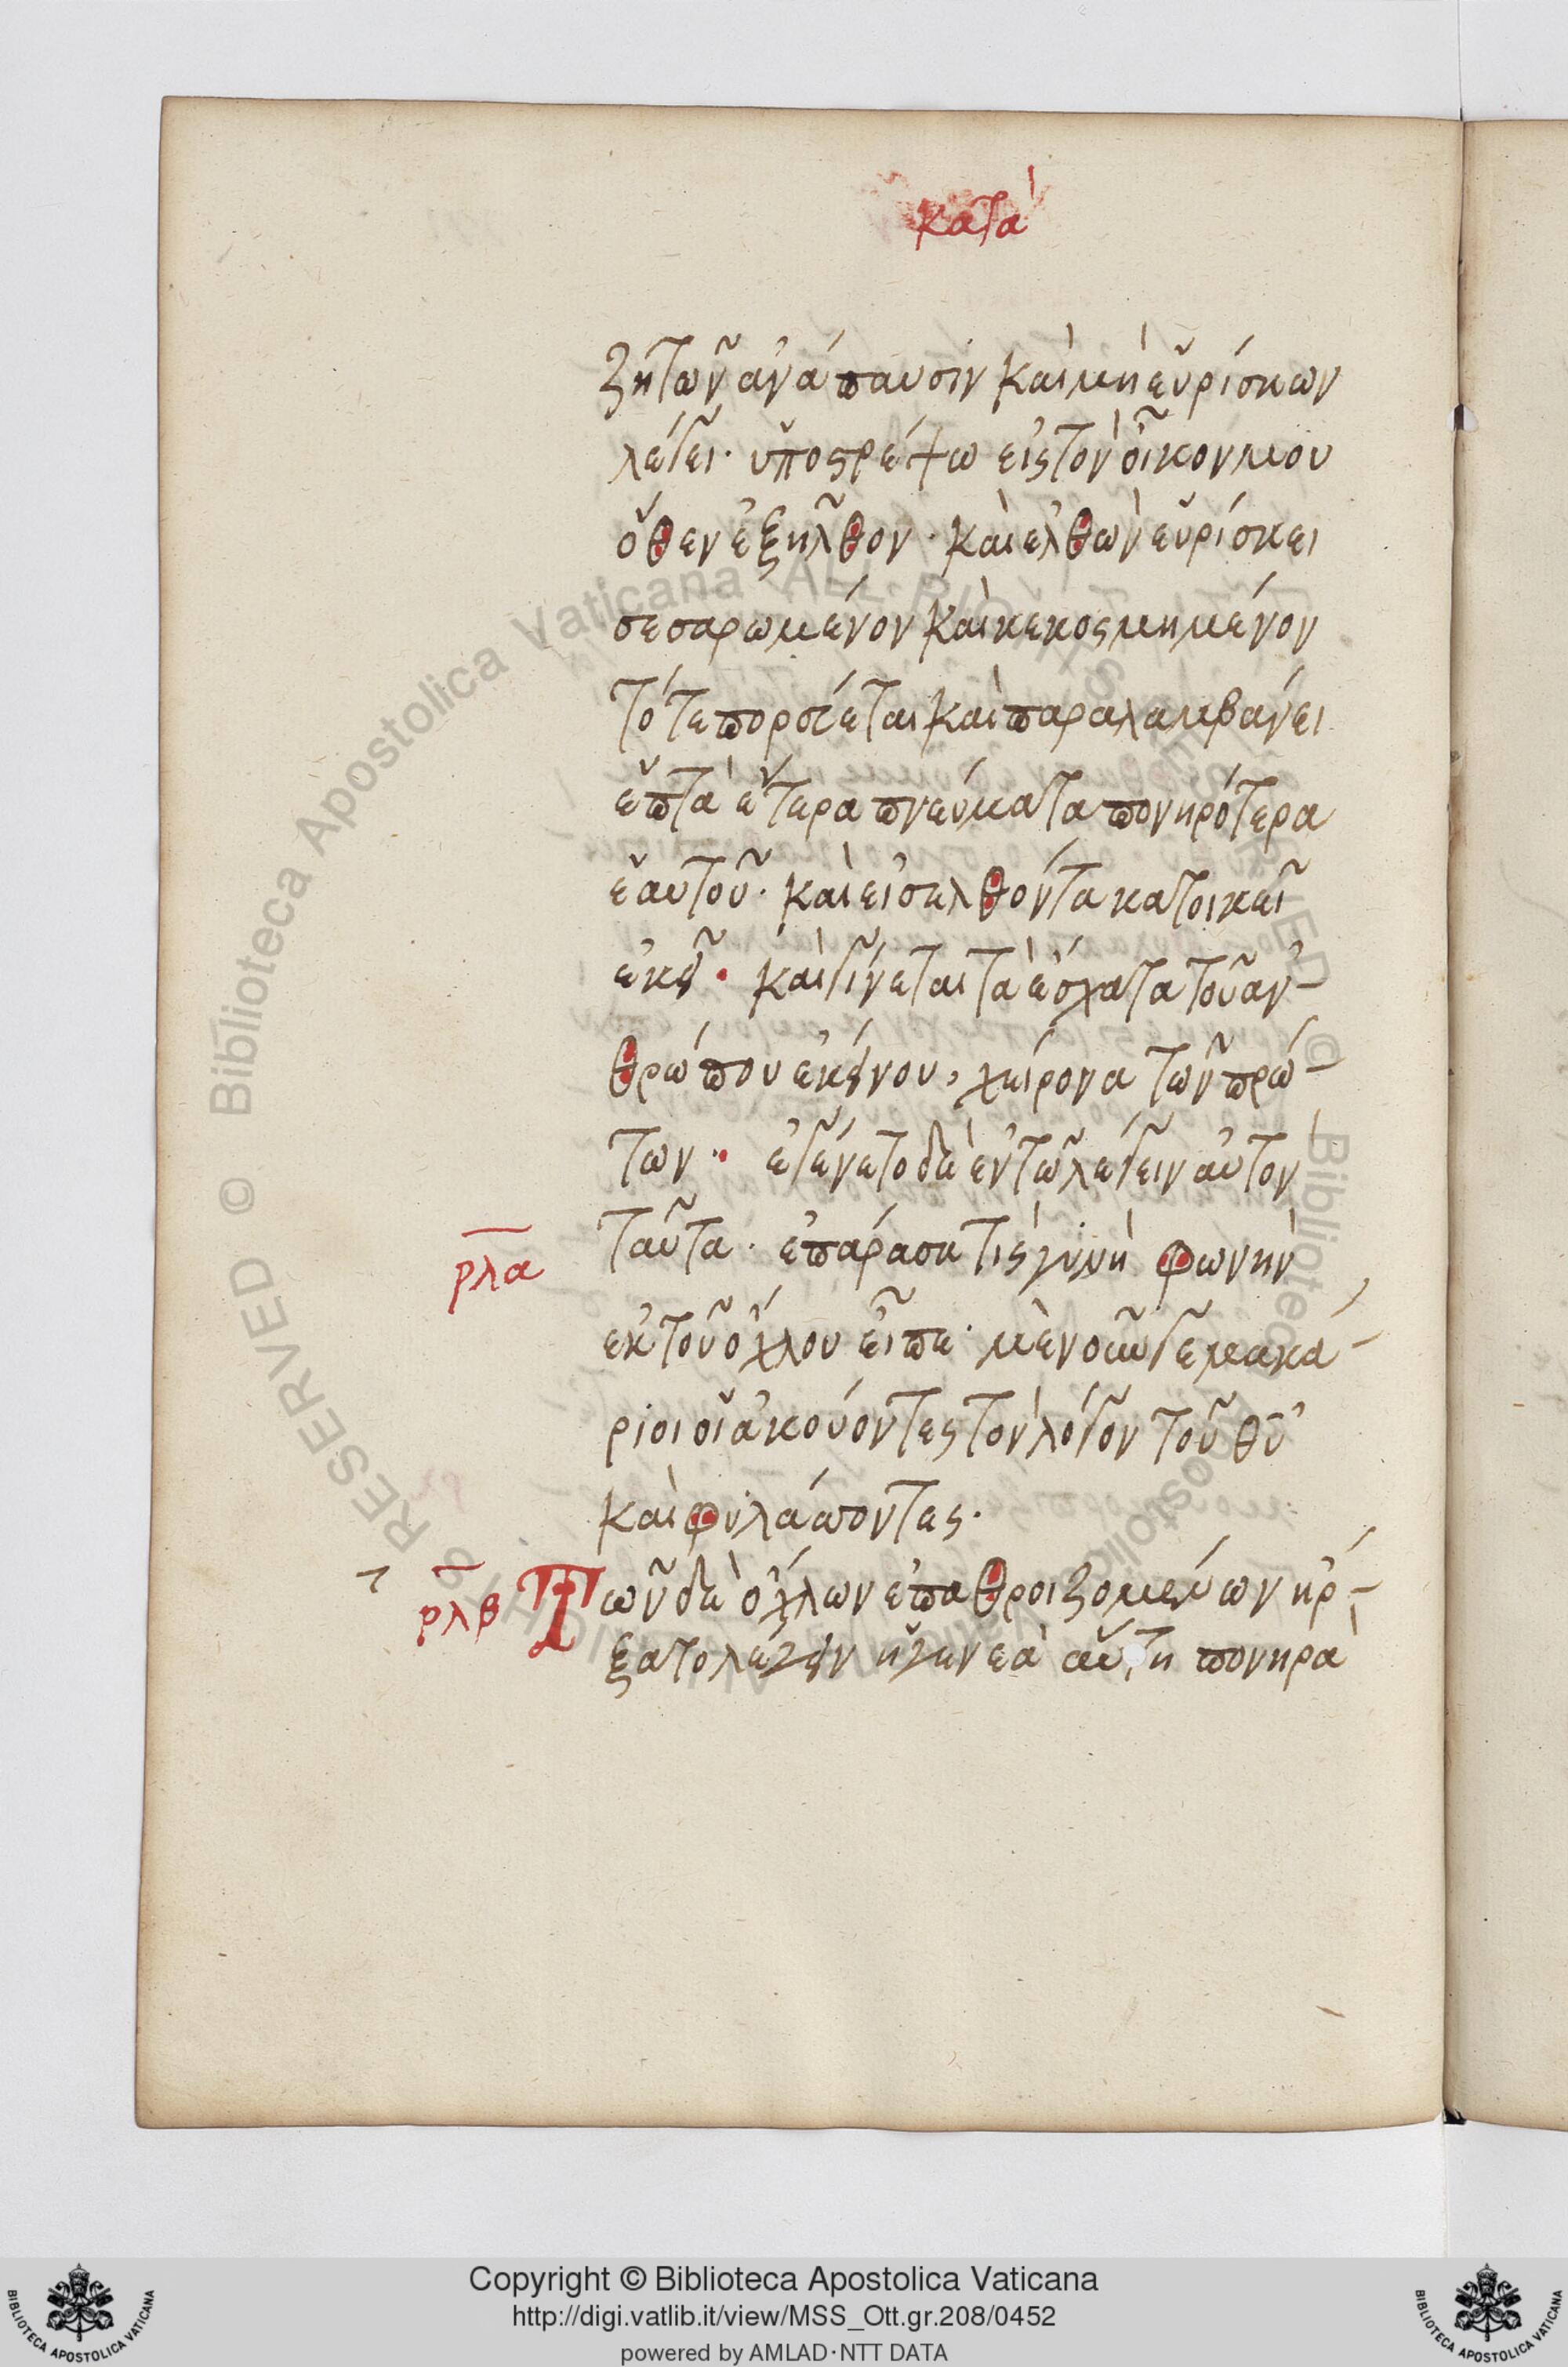 κατὰ
ζητῶν ἀνάπαυσιν καὶ μὴ εὑρίσκων
λέγει· ὑποστρέψω εἰς τὸν οἶκον μου
ὅθεν ἐξῆλθον· καὶ ἐλθὼν εὑρίσκει
σεσαρωμένον καὶ κεκοσμημένον
τότε πορεύεται καὶ παραλαμβάνει
ἑπτὰ ἕτερα πνεύματα πονηρότερα
ἑαυτοῦ· καὶ εἰσελθόντα κατοικεῖ
ἐκεῖ· καὶ γίνεται τὰ ἔσχατα τοῦ ἀν-
θρώπου ἐκείνου, χείρονα τῶν πρώ-
των·· ἐγένετο δὲ ἐν τῶ λέγειν αὐτὸν
ρλα ταῦτα· ἐπάρασα τὶς γυνὴ φωνὴν
ἐκ τοῦ ὄχλου εἶπε· μενοῦνγε μακά-
ριοι οἱ ἀκούοντες τὸν λόγον τοῦ θυ
καὶ φυλάττοντες·
ρλβ Τῶν δὲ ὄχλων ἐπαθροιζομένων ἤρ-
ξατο λέγειν ἡ γενεὰ αὕτη πονηρὰ
Copyright © Biblioteca Apostolica Vaticana
http://digi.vatlib.it/view/MSS_Ott.gr.208/0452
powered by AMLAD·NTT DATA
BIBLIOTECA APOSTOLICA VATICANA
BIBLIOTECA APOSTOLICA VATICANA